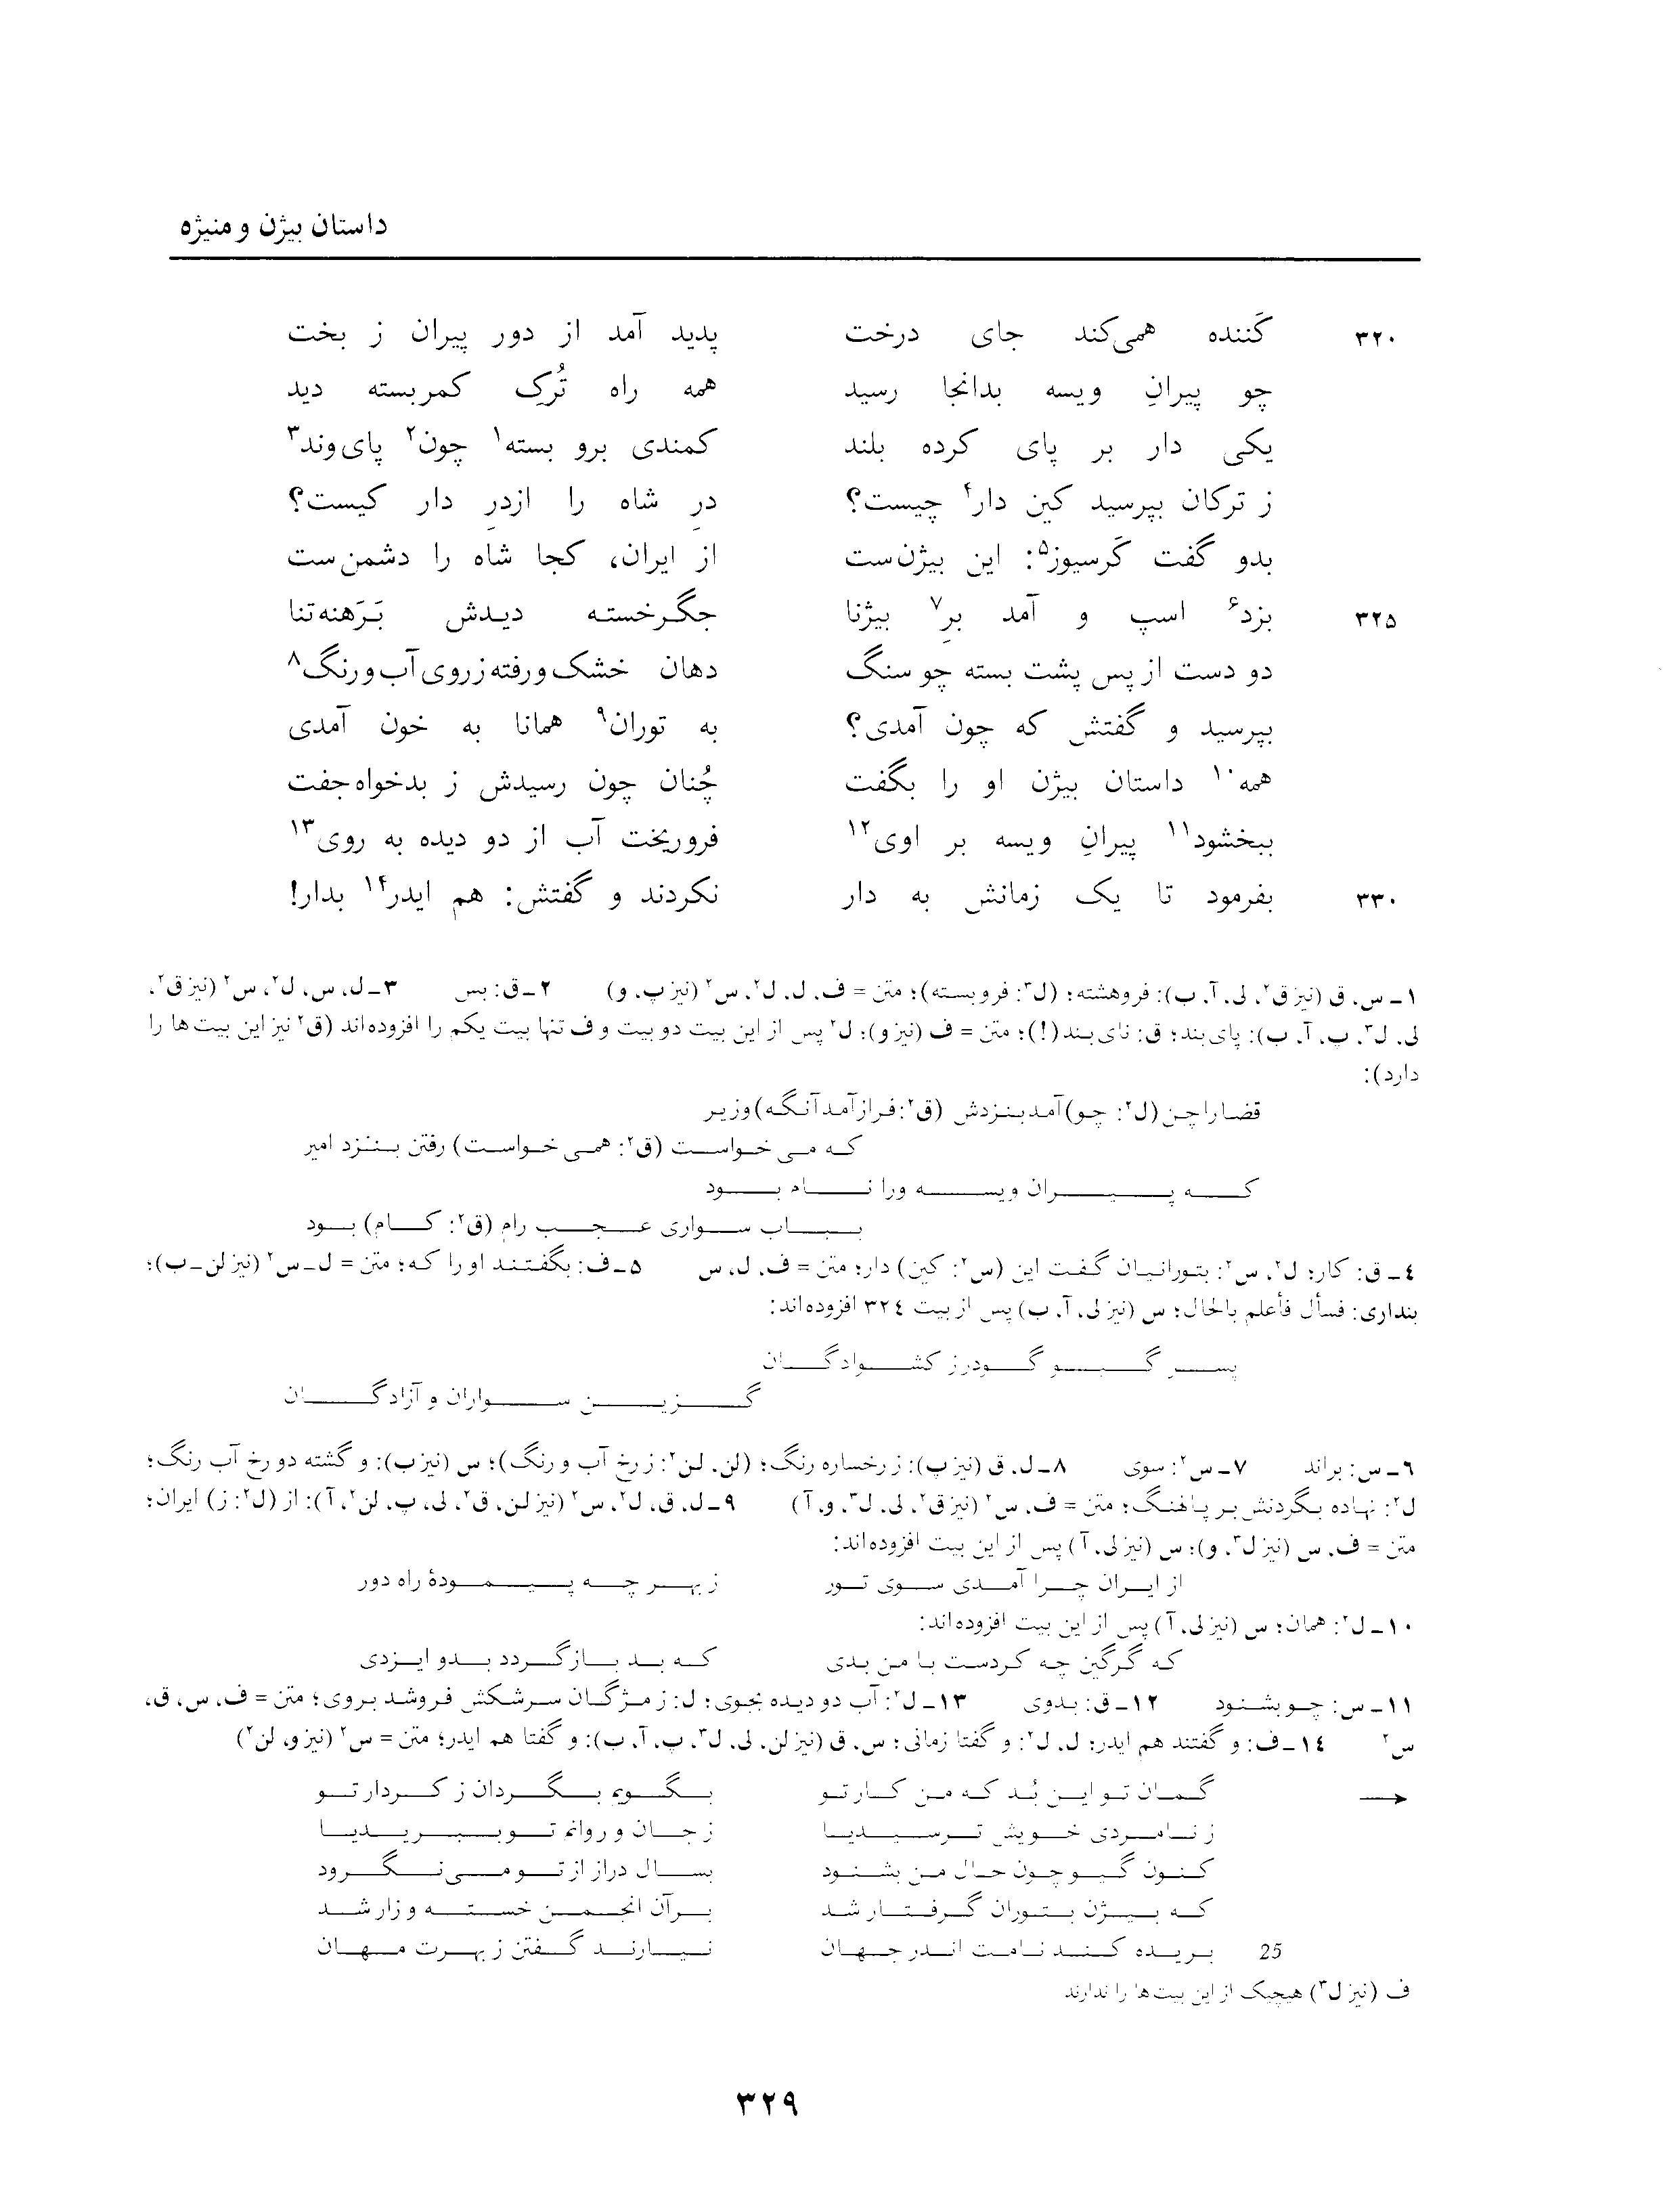 داستان بیژن و منیژه
۳۲۰ کَننده همی‌کند جای درخت پدید آمد از دور پیران ز بخت
چو پیرانِ ویسه بدانجا رسید همه راه تُرکِ کمربسته دید
یکی دار بر پای کرده بلند کمندی برو بسته۱ چون۲ پای‌وند۳
ز ترکان بپرسید کین دار۴ چیست؟ درِ شاه را ازدرِ دار کیست؟
بدو گفت گَرسیوز۵: این بیژن‌ست از ایران، کجا شاه را دشمن‌ست
۳۲۵ بزد۶ اسپ و آمد برِ۷ بیژنا جگرخسته دیدش بَرَهنه‌تنا
دو دست از پس پشت بسته چو سنگ دهان خشک و رفته ز روی آب و رنگ۸
بپرسید و گفتش که چون آمدی؟ به توران۹ همانا به خون آمدی
همه۱۰ داستان بیژن او را بگفت چُنان چون رسیدش ز بدخواه جفت
ببخشود۱۱ پیرانِ ویسه بر اوی۱۲ فروریخت آب از دو دیده به روی۱۳
۳۳۰ بفرمود تا یک زمانش به دار نکردند و گفتش: هم ایدر۱۴ بدار!
۱ــ س، ق (نیز ق۲، لی، آ، ب): فروهشته؛ (ل۳: فروبسته)؛ متن = ف، ل، ل۲، س۲ (نیز پ، و) ۲ــ ق: بس ۳ــ ل، س، ل۲، س۲ (نیز ق۲،
لی، ل۳، پ، آ، ب): پای‌بند؛ ق: نای‌بند(!)؛ متن = ف (نیز و)؛ ل۲ پس از این بیت دو بیت و ف تنها بیت یکم را افزوده‌اند (ق۲ نیز این بیت‌ها را
دارد):
قضا را چن (ل۲: چو) آمد بنزدش (ق۲: فراز آمد آنگه) وزیر
که می خواست (ق۲: همی خواست) رفتن بنزد امیر
که پیران ویسه ورا نام بود
بباب سواری عجب رام (ق۲: کام) بود
۴ــ ق: کار؛ ل۲، س۲: بتورانیان گفت این (س۲: کین) دار؛ متن = ف، ل، س ۵ــ ف: بگفتند او را که؛ متن = ل ــ س۲ (نیز لن ــ ب)؛
بنداری: فسأل فأعلم بالحال؛ س (نیز لی، آ، ب) پس از بیت ۳۲۴ افزوده‌اند:
پسر گیو گودرز کشوادگان
گزین سواران و آزادگان
۶ــ س: براند ۷ــ س۲: سوی ۸ــ ل، ق (نیز پ): ز رخساره رنگ؛ (لن، لن۲: ز رخ آب و رنگ)؛ س (نیز ب): و گشته دو رخ آب رنگ؛
ل۲: نهاده بگردنش بر پالهنگ؛ متن = ف، س۲ (نیز ق۲، لی، ل۳، و، آ) ۹ــ ل، ق، ل۲، س۲ (نیز لن، ق۲، لی، پ، لن۲، آ): از (ل۲: ز) ایران؛
متن = ف، س (نیز ل۳، و)؛ س (نیز لی، آ) پس از این بیت افزوده‌اند:
از ایران چرا آمدی سوی تور ز بهر چه پیمودهٔ راه دور
۱۰ــ ل۲: همان؛ س (نیز لی، آ) پس از این بیت افزوده‌اند:
که گرگین چه کردست با من بدی که بد بازگردد بدو ایزدی
۱۱ــ س: چو بشنود ۱۲ــ ق: بدوی ۱۳ــ ل۲: آب دو دیده بجوی؛ ل: ز مژگان سرشکش فروشد بروی؛ متن = ف، س، ق،
س۲ ۱۴ــ ف: و گفتند هم ایدر؛ ل، ل۲: و گفتا زمانی؛ س، ق (نیز لن، لی، ل۳، پ، آ، ب): و گفتا هم ایدر؛ متن = س۲ (نیز و، لن۲)
→ گمان تو این بُد که من کار تو بگویم بگردان ز کردار تو
ز نامردی خویش ترسیدیا ز جان و روانم تو ببریدیا
کنون گیو چون حال من بشنود بسال دراز از تو می نگرود
که بیژن بتوران گرفتار شد بر آن انجمن خسته و زار شد
25 بریده کند نامت اندر جهان نیارند گفتن ز بهرت مهان
ف (نیز ل۳) هیچیک از این بیت‌ها را ندارند
۳۲۹